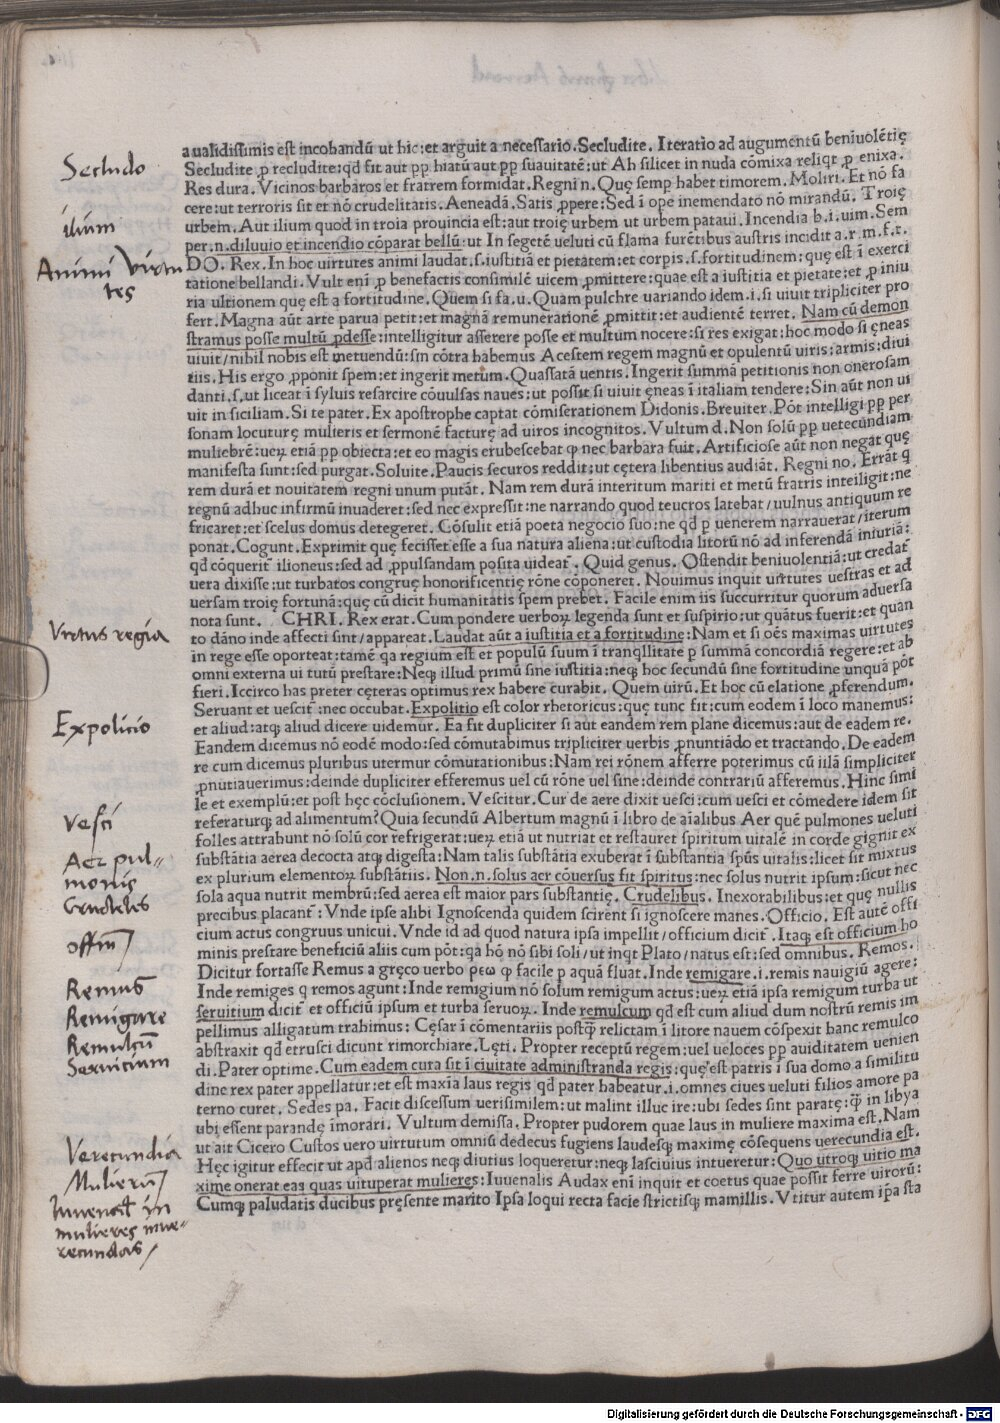 a ualidissimis est incohandū ut hic:et arguit a necessario.Secludite. Iteratio ad augumentū beniuolētię
Secludo
Secludite ꝓ recludite:qd̄ fit aut pp̱ hiatū aut pp̱ suauitatē:ut Ah silicet in nuda cōmixa reliqt ꝓ enixa.
Res dura. Vicinos barbaros et fratrem formidat. Regni n. Quę semp habet timorem. Moliri. Et nō fa
cere:ut terroris sit et nō crudelitatis. Aeneadā. Satis ꝓpere: Sed ī ope inemendato nō mirandū. Troię
ilium
urbem. Aut ilium quod in troia prouincia est:aut troię urbem ut urbem pataui. Incendia b.i.uim. Sem
per.n.diluuio et incendio cōparat bellū:ut In segetē ueluti cū flama furētibus austris incidit a.r.m.f.t.
Animi Virtu
tes
DO. Rex. In hoc uirtutes animi laudat.s.iustitiā et pietatem:et corpis.s.fortitudinem:quę est ī exerci
tatione bellandi. Vult enī ꝓ benefactis consimilē uicem ꝓmittere:quae est a iustitia et pietate:et ꝓ iniu
ria ultionem quę est a fortitudine. Quem si fa.u. Quam pulchre uariando idem.i.si uiuit tripliciter pro
fert. Magna aūt arte parua petit:et magnā remunerationē ꝓmittit:et audientē terret. Nam cū demon
stramus posse multū ꝓdesse:intelligitur asserere posse et multum nocere:si res exigat:hoc modo si ęneas
uiuit/nihil nobis est metuendū:sin cōtra habemus Acestem regem magnū et opulentū uiris:armis:diui
tiis. His ergo ꝓponit spem:et ingerit metum. Quassatā uentis. Ingerit summā petitionis non onerosam
danti.s.ut liceat ī syluis resarcire cōuulsas naues:ut possit si uiuit ęneas ī italiam tendere: Sin aūt non ui
uit in siciliam. Si te pater. Ex apostrophe captat cōmiserationem Didonis. Breuiter. Pōt intelligi pp̱ per
sonam locuturę mulieris et sermonē facturę ad uiros incognitos. Vultum d. Non solū pp̱ uetecundiam
muliebrē:ueꝝ etiā pp̱ obiecta:et eo magis erubescebat ꝙ nec barbara fuit. Artificiose aūt non negat quę
manifesta sunt:sed purgat. Soluite. Paucis securos reddit:ut cętera libentius audiāt. Regni no. Errāt q
rem durā et nouitatem regni unum putāt. Nam rem durā interitum mariti et metū fratris inteiligit:ne
regnū adhuc infirmū inuaderet:sed nec expressit:ne narrando quod teucros latebat/uulnus antiquum re
fricaret:et scelus domus detegeret. Cōsulit etiā poeta negocio suo:ne qd̄ ꝓ uenerem narrauerat/iterum
ponat. Cogunt. Exprimit quę fecisset esse a sua natura aliena:ut custodia litorū nō ad inferendā iniuriā:
qd̄ cōquerit̄ ilioneus:sed ad ꝓpulsandam posita uideat̄. Quid genus. Ostendit beniuolentiā:ut credat̄
uera dixisse:ut turbatos congruę honorificentię rōne cōponeret. Nouimus inquit uirtutes uestras et ad
uersam troię fortunā:quę cū dicit humanitatis spem prębet. Facile enim iis succurritur quorum aduersa
nota sunt. CHRI. Rex erat. Cum pondere uerboꝝ legenda sunt et suspirio:ut quātus fuerit:et quan
Virtus regia
to dāno inde affecti sint/appareat. Laudat aūt a iustitia et a fortitudine: Nam et si oēs maximas uirtutes
in rege esse oporteat:tamē qa regium est et populū suum ī tranqllitate ꝓ summā concordiā regere:et ab
omni externa ui tutū prestare: Neqꝫ illud primū sine iustitia:neqꝫ hoc secundū sine fortitudine unquā pōt
fieri. Iccirco has preter cęteras optimus rex habere curabit. Quem uirū. Et hoc cū elatione ꝓferendum.
Seruant et uescit̄:nec occubat. Expolitio est color rhetoricus:quę tunc fit:cum eodem ī loco manemus:
Expolicio
et aliud:atqꝫ aliud dicere uidemur. Ea fit dupliciter si aūt eandem rem plane dicemus:aut de eadem re.
Eandem dicemus nō eodē modo:sed cōmutabimus tripliciter uerbis ꝓnuntiādo et tractando. De eadem
re cum dicemus pluribus utermur cōmutationibus: Nam rei rōnem afferre poterimus cū illā simpliciter
ꝓnutiauerimus:deinde dupliciter efferemus uel cū rōne uel sine:deinde contrariū afferemus. Hinc simi
le et exemplū:et post hęc cōclusionem. Vescitur. Cur de aere dixit uesci:cum uesci et cōmedere idem sit
Vesci
referaturqꝫ ad alimentum? Quia secundū Albertum magnū ī libro de aīalibus Aer quē pulmones ueluti
folles attrahunt nō solū cor refrigerat:ueꝝ etiā ut nutriat et restauret spiritum uitalē in corde gignit ex
Aer pul-
monis
substātia aerea decocta atqꝫ digesta: Nam talis substātia exuberat ī substantia spūs uitalis:licet sit mixtus
ex plurium elementoꝝ substātiis. Non.n.solus aer cōuersus fit spiritus:nec solus nutrit ipsum:sicut nec
sola aqua nutrit membrū:sed aerea est maior pars substantię. Crudelibus. Inexorabilibus:et quę nullis
Crudeles
precibus placant̄: Vnde ipse alibi Ignoscenda quidem scirent si ignoscere manes. Officio. Est autē offi
cium actus congruus unicui. Vnde id ad quod natura ipsa impellit/officium dicit̄. Itaqꝫ est officium ho
offm̄
minis prestare beneficiū aliis cum pōt:qa hō nō sibi soli/ut inqt Plato/natus est:sed omnibus. Remos.
Dicitur fortasse Remus a gręco uerbo ρεω ꝙ facile ꝑ aquā fluat. Inde remigare.i.remis nauigiū agere:
Remus
Inde remiges q remos agunt: Inde remigium nō solum remigum actus:ueꝝ etiā ipsa remigum turba ut
Remigare
seruitium dicit̄ et officiū ipsum et turba seruoꝝ. Inde remulcum qd̄ est cum aliud dum nostrū remis im
Remulcū
pellimus alligatum trahimus: Cęsar ī cōmentariis postꝙ̄ relictam ī litore nauem cōspexit hanc remulco
Seruicium
abstraxit qd̄ etrusci dicunt rimorchiare. Lęti. Propter receptū regem:uel ueloces pp̱ auiditatem uenien
di. Pater optime. Cum eadem cura sit ī ciuitate administranda regis:quę est patris ī sua domo a similitu
dine rex pater appellatur:et est maxīa laus regis qd̄ pater habeatur.i.omnes ciues ueluti filios amore pa
terno curet. Sedes pa. Facit discessum uerisimilem:ut malint illuc ire:ubi sedes sint paratę:ꝙ̄ in libya
ubi essent parandę īmorāri. Vultum demissa. Propter pudorem quae laus in muliere maxima est. Nam
Verecundia
Mulierū
ut ait Cicero Custos uero uirtutum omniū dedecus fugiens laudesqꝫ maximę cōsequens uerecundia est.
Hęc igitur effecit ut apd̄ alienos neqꝫ diutius loqueretur:neqꝫ lasciuius intueretur: Quo utroqꝫ uitio ma
xime onerat eas quas uituperat mulieres: Iuuenalis Audax enī inquit et coetus quae possit ferre uirorū:
Iuuenal̄ in
mulieres inue-
recundas
Cumqꝫ paludatis ducibus pręsente marito Ipsa loqui recta facie strictisqꝫ mamillis. Vtitur autem ip̄a sta
Digitalisierung gefördert durch die Deutsche Forschungsgemeinschaft - DFG